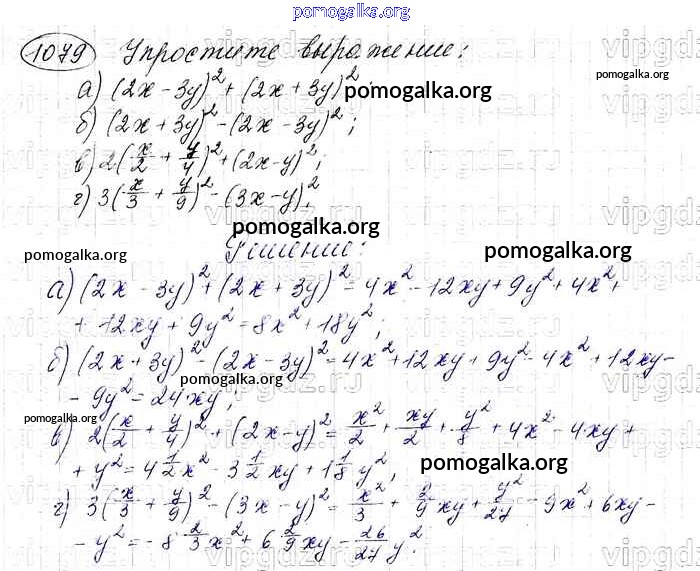 pomogalka.org
1079 Упростите выражение:
а) (2x - 3y)² + (2x + 3y)²; pomogalka.org
б) (2x + 3y)² - (2x - 3y)²;
в) 2(x/2 + y/4)² + (2x - y)²;
г) 3(x/3 + y/9)² - (3x - y)².
pomogalka.org
Решение:
pomogalka.org
pomogalka.org
а) (2x - 3y)² + (2x + 3y)² = 4x² - 12xy + 9y² + 4x² +
+ 12xy + 9y² = 8x² + 18y²;
б) (2x + 3y)² - (2x - 3y)² = 4x² + 12xy + 9y² - 4x² + 12xy -
- 9y² = 24xy;
pomogalka.org
pomogalka.org
в) 2(x/2 + y/4)² + (2x - y)² = x²/2 + xy/2 + y²/8 + 4x² - 4xy +
+ y² = 4 1/2 x² - 3 1/2 xy + 1 1/8 y²; pomogalka.org
г) 3(x/3 + y/9)² - (3x - y)² = x²/3 + 2/9 xy + y²/27 - 9x² + 6xy -
- y² = -8 2/3 x² + 6 2/9 xy - 26/27 y².
pomogalka.org
vipgdz.ru
vipgdz.ru
vipgdz.ru
vipgdz.ru